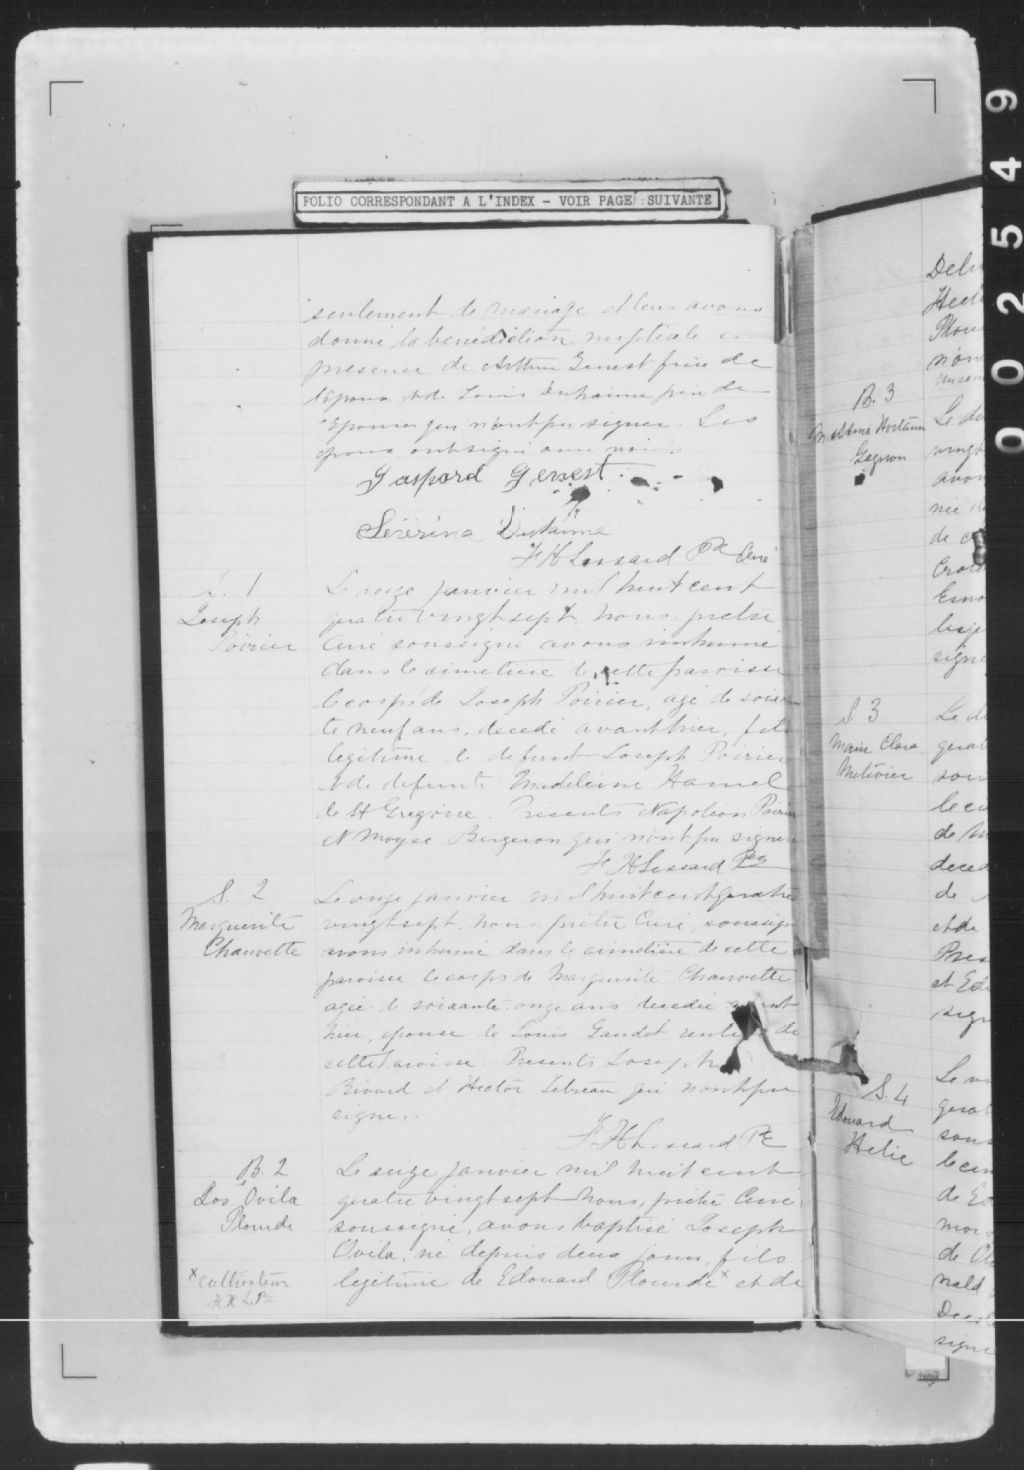 FOLIO CORRESPONDANT A L'INDEX - VOIR PAGE SUIVANTE
002549
seulement le mariage et leur avons
donné la bénédiction nuptiale en
presence de Arthur Genest frère de
l'époux et de Louis Duhaime père de
l'épouse qui n'ont pu signer. Les
époux ont signé avec nous.
Gaspard Genest
Sévérina Duhaime
F H Lessard Ptre Curé
S. 1
Joseph
Poirier
Le onze janvier mil huit cent
quatre vingt sept, nous, prêtre
Curé soussigné avons inhumé
dans le cimetière de cette paroisse
le corps de Joseph Poirier, agé de soixan
te neuf ans, decedé avant hier, fils
legitime de defunt Joseph Poirier
et de defunte Madeleine Hamel
de St Gregoire. Présents Napoleon Poirier
et Moyse Bergeron qui n'ont pu signer
F H Lessard Ptre
S. 2
Marguerite
Chauvette
Le onze janvier mil huit cent quatre
vingt sept, nous, prêtre Curé, soussigné
avons inhumé dans le cimetière de cette
paroisse le corps de Marguerite Chauvette
agée de soixante onze ans decedée avant
hier, epouse de Louis Gaudet rentier de
cette paroisse. Presents Joseph
Rivard et Hector Lebeau qui n'ont pu
signer.
F. H Lessard Ptre
B. 2
Jos. Ovila
Plourde
Le seize janvier mil huit cent
quatre vingt sept Nous, prêtre Curé
soussigné, avons baptisé Joseph
Ovila, né depuis deux jours, fils
legitime de Edouard Plourde x et de
x cultivateur
F H L Ptre
B. 3
M. Albina Hortense
Gagnon
S. 3
Marie Clara
Metivier
S. 4
Edouard
Helie
Le d
vingt
avon
née
de c
lesq
signe
Le d
quat
sou
le co
de M
deced
de
et de
Pres
et Ed
sign
quat
sous
le co
de Ed
de
nald
signe